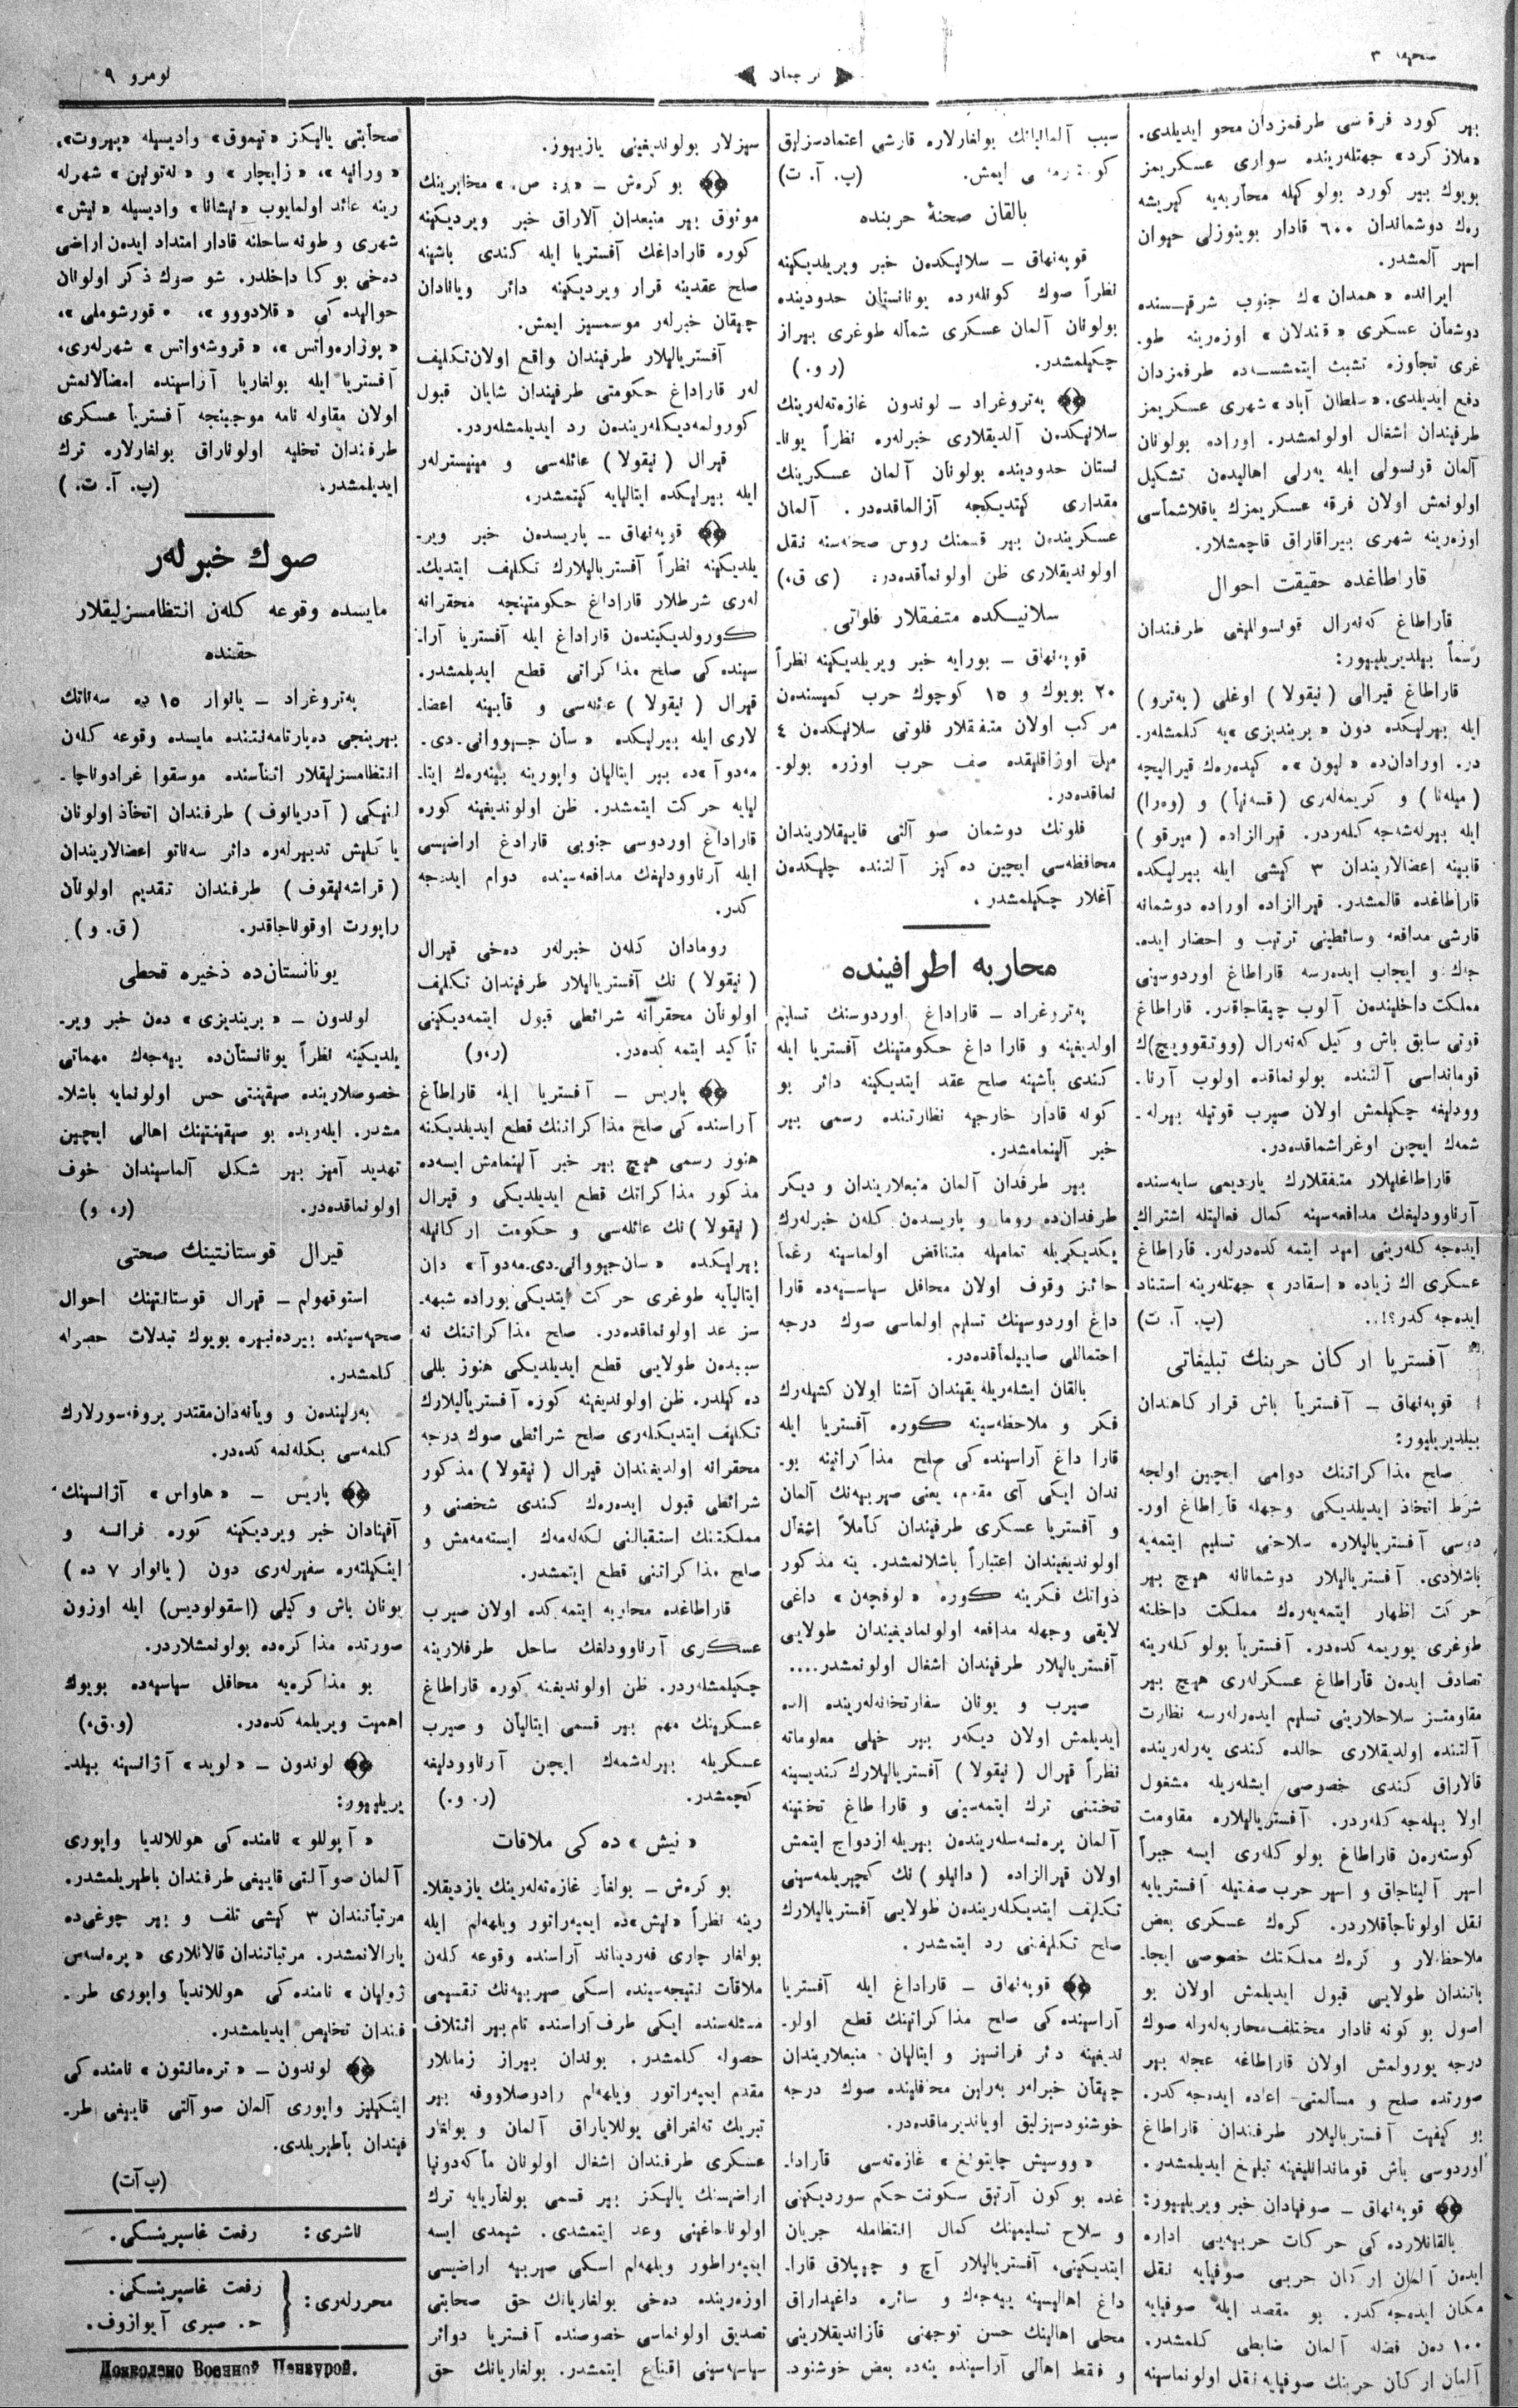 صحیفه ٣
ترجمان
نومرو ٩
بیر کورد فرقه سی طرفمزدان محو ایدیلدی.
«ملاز کرد» جهتلەرینده سواری عسکریمز
بویوك بیر کورد بولو کیله محاربه‌یه کیریشه
رەك دوشماندان ٦٠٠ قادار بوینوزلی حیوان
اسیر آلمشدر.
ایرانده «همدان»ك جنوب شرقیسنده
دوشمان عسکری «قندلان» اوزەرینه طو-
غری تجاوزه تشبث ایتمشسه‌ده طرفمزدان
دفع ایدیلدی. «سلطان آباد» شهری عسکریمز
طرفیندان اشغال اولونمشدر. اوراده بولونان
آلمان قونسولی ایله یەرلی اهالیدەن تشکیل
اولونمش اولان فرقه عسکریمزك یاقلاشماسی
اوزەرینه شهری بیراقاراق قاچمشلار.
قاراطاغده حقیقت احوال
قاراطاغ کەنەرال قونسولیغی طرفندان
رسماً بیلدیریلییور:
قاراطاغ قیرالی (نیقولا) اوغلی (پەترو)
ایله بیرلیکده دون «بریندیزی»یه کلمشلەر-
در. اورادان‌ده «لیون»ه کیدەرەك قیرالیچه
(میلەنا) و کریمەلەری (قسەنیا) و (وەرا)
ایله بیرلەشەجه کلەردر. قیرالزاده (میرقو)
قابینه اعضالاریندان ٣ کیشی ایله بیرلیکده
قاراطاغده قالمشدر. قیرالزاده اوراده دوشمانه
قارشی مدافعه وسائطینی ترتیب و احضار ایده-
جك و ایجاب ایدەرسه قاراطاغ اوردوسینی
مملکت داخلیندەن آلوب چیقاجاقدر. قاراطاغ
قوتی سابق باش وکیل کەنەرال (ووتقوویچ)ك
قومانداسی آلتنده بولونماقده اولوب آرنا-
وودلیغه چکیلمش اولان صیرب قوتیله بیرلە-
شمەك ایچین اوغراشماقده‌در.
قاراطاغلیلار متفقلارك یاردیمی سایه‌سنده
آرناوودلیغك مدافعه‌سینه کمال فعالیتله اشتراك
ایدەجه کلەرینی امید ایتمه کده‌درلەر. قاراطاغ
عسکری اك زیاده «اسقادر» جهتلەرینه استناد
ایدەجه کدر؟!.. (پ. آ. ت)
آفستریا ارکان حربنك تبلیغاتی
قوپەنهاق – آفستریا باش قرار کاهندان
بیلدیریلیور:
صلح مذاکراتنك دوامی ایچین اولجه
شرط اتخاذ ایدیلدیکی وجهله قاراطاغ اور-
دوسی آفستریالیلاره سلاحنی تسلیم ایتمه‌یه
باشلادی. آفستریالیلار دوشمانانه هیچ بیر
حرکت اظهار ایتمه‌یەرەك مملکت داخلنه
طوغری یوریمه کده‌در. آفستریا بولو کلەرینه
تصادف ایدەن قاراطاغ عسکرلەری هیچ بیر
مقاومتسز سلاحلارینی تسلیم ایدەرلەرسه نظارت
آلتنده اولدیقلاری حالده کندی یەرلەرینده
قالاراق کندی خصوصی ایشلەریله مشغول
اولا بیلەجه کلەردر. آفستریالیلاره مقاومت
کوستەرەن قاراطاغ بولو کلەری ایسه جبراً
اسیر آلیناجاق و اسیر حرب صفتیله آفستریایه
نقل اولوناجاقلاردر. کرەك عسکری بعض
ملاحظه‌لار و کرەك مملکتك خصوصی ایجا-
باتندان طولایی قبول ایدیلمش اولان بو
اصول بو کونه قادار مختلف محاربه‌لەرله صوك
درجه یورولمش اولان قاراطاغه عجله بیر
صورتده صلح و مسالمتی اعاده ایدەجه کدر.
بو کیفیت آفستریالیلار طرفندان قاراطاغ
اوردوسی باش قوماندانلیغینه تبلیغ ایدیلمشدر.
قوپەنهاق – صوفیادان خبر ویریلییور:
بالقانلارده کی حرکات حربیه‌یی اداره
ایدەن آلمان ارکان حربی صوفیایه نقل
مکان ایدەجه کدر. بو مقصد ایله صوفیایه
١٠٠ دەن فضله آلمان ضابطی کلمشدر.
آلمان ارکان حربنك صوفیایه نقل اولونماسینه
سبب آلمانیانك بولغارلاره قارشی اعتمادسزلیق
کوسترمەسی ایمش. (پ. آ. ت)
بالقان صحنهٔ حربنده
قوپەنهاق – سلانیکدەن خبر ویریلدیکینه
نظراً صوك کونلەرده یونانستان حدودینده
بولونان آلمان عسکری شماله طوغری بیراز
چکیلمشدر. (ر و.)
پەتروغراد – لوندون غازەتەلەرینك
سلانیکدەن آلدیقلاری خبرلەره نظراً یونا-
نستان حدودینده بولونان آلمان عسکرینك
مقداری کیتدیکجه آزالماقده‌در. آلمان
عسکریندەن بیر قسمنك روس صحنه‌سنه نقل
اولوندیقلاری ظن اولونماقده‌در: (ی ق.)
سلانیکده متفقلار فلوتی
قوپەنهاق – بورایه خبر ویریلدیکینه نظراً
٢٠ بویوك و ١٥ کوچوك حرب کمیسندەن
مرکب اولان متفقلار فلوتی سلانیکدەن ٤
میل اوزاقلیقده صف حرب اوزره بولو-
نماقده‌در.
فلوتك دوشمان صو آلتی قاییقلاریندان
محافظه‌سی ایچین دەکیز آلتنده چلیکدەن
آغلار چکیلمشدر.
محاربه اطرافینده
پەتروغراد – قاراداغ اوردوسنك تسلیم
اولدیغینه و قاراداغ حکومتینك آفستریا ایله
کندی باشینه صلح عقد ایتدیکینه دائر بو
کونه قادار خارجیه نظارتنده رسمی بیر
خبر آلینمامشدر.
بیر طرفدان آلمان منبعلاریندان و دیکر
طرفدان‌ده روما و پاریسدەن کلەن خبرلەرك
یکدیکریله تمامیله متناقض اولماسینه رغماً
حائز وقوف اولان محافل سیاسیه‌ده قارا
داغ اوردوسینك تسلیم اولماسی صوك درجه
احتماللی صاییلماقده‌در.
بالقان ایشلەریله یقیندان آشنا اولان کشیلەرك
فکر و ملاحظه‌سینه کوره آفستریا ایله
قارا داغ آراسینده کی صلح مذاکراتینه بو-
ندان ایکی آی مقدم، یعنی صیربیه‌نك آلمان
و آفستریا عسکری طرفیندان کاملاً اشغال
اولوندیغیندان اعتباراً باشلانمشدر. ینه مذکور
ذواتك فکرینه کوره «لوفچەن» داغی
لایقی وجهله مدافعه اولونمادیغیندان طولایی
آفستریالیلار طرفیندان اشغال اولونمشدر....
صیرب و یونان سفارتخانه‌لەرینده الده
ایدیلمش اولان دیکەر بیر خیلی معلوماته
نظراً قیرال (نیقولا) آفستریالیلارك کندیسینه
تختنی ترك ایتمه‌سینی و قاراطاغ تختینه
آلمان پرەنسەسلەریندەن بیریله ازدواج ایتمش
اولان قیرالزاده (دانیلو)نك کچیریلمه‌سینی
تکلیف ایتدیکلەریندەن طولایی آفستریالیلارك
صلح تکلیفنی رد ایتمشدر.
قوپەنهاق – قاراداغ ایله آفستریا
آراسینده کی صلح مذاکراتینك قطع اولو-
ندیغینه دائر فرانسیز و ایتالیان منبعلاریندان
چیقان خبرلەر بەرلین محافلینده صوك درجه
خوشنودسیزلیق اویاندیرماقده‌در.
«ووسیش چایتونغ» غازەتەسی قارادا-
غده بو کون آرتیق سکونت حکم سوردیکینی
و سلاح تسلیمینك کمال انتظامله جریان
ایتدیکینی، آفستریالیلار آچ و چیپلاق قارا-
داغ اهالیسینه ییەجەك و سائره داغیداراق
محلی اهالینك حسن توجهنی قازاندیقلارینی
و فقط اهالی آراسینده ینه‌ده بعض خوشنود-
سیزلار بولوندیغینی یازییور.
بوکرەش – «ڨ. ص.» مخابرینك
موثوق بیر منبعدان آلاراق خبر ویردیکینه
کوره قاراداغك آفستریا ایله کندی باشینه
صلح عقدینه قرار ویردیکینه دائر ویانادان
چیقان خبرلەر موسمسیز ایمش.
آفستریالیلار طرفیندان واقع اولان تکلیف
لەر قاراداغ حکومتی طرفیندان شایان قبول
کورولمەدیکلەریندەن رد ایدیلمشلەردر.
قیرال (نیقولا) عائله‌سی و مینیسترلەر
ایله بیرلیکده ایتالیایه کیتمشدر.
قوپەنهاق – پاریسدەن خبر ویر-
یلدیکینه نظراً آفستریالیلارك تکلیف ایتدیك-
لەری شرطلار قاراداغ حکومتینجه محقرانه
کورولدیکیندەن قاراداغ ایله آفستریا آرا-
سینده کی صلح مذاکراتی قطع ایدیلمشدر.
قیرال (نیقولا) عائله‌سی و قابینه اعضا-
لاری ایله بیرلیکده «سان جیووانی-دی-
مەدوآ»ده بیر ایتالیان واپورینه بینەرەك ایتا-
لیایه حرکت ایتمشدر. ظن اولوندیغینه کوره
قاراداغ اوردوسی جنوبی قاراداغ اراضیسی
ایله آرناوودلیغك مدافعه‌سینده دوام ایدەجه
کدر.
رومادان کلەن خبرلەر دەخی قیرال
(نیقولا) نك آفستریالیلار طرفیندان تکلیف
اولونان محقرانه شرائطی قبول ایتمەدیکینی
تأکید ایتمه کده‌در. (ر،و)
پاریس – آفستریا ایله قاراطاغ
آراسنده کی صلح مذاکراتنك قطع ایدیلدیکینه
هنوز رسمی هیچ بیر خبر آلینمامش ایسه‌ده
مذکور مذاکراتك قطع ایدیلدیکی و قیرال
(نیقولا)نك عائله‌سی و حکومت ارکانیله
بیرلیکده «سان جیووانی-دی-مەدوآ» دان
ایتالیایه طوغری حرکت ایتدیکی بوراده شبهه-
سز عد اولونماقده‌در. صلح مذاکراتنك نه
سببدەن طولایی قطع ایدیلدیکی هنوز بللی
دەکیلدر. ظن اولوندیغینه کوره آفستریالیلارك
تکلیف ایتدیکلەری صلح شرائطی صوك درجه
محقرانه اولدیغندان قیرال (نیقولا) مذکور
شرائطی قبول ایدەرەك کندی شخصنی و
مملکتنك استقبالنی لکەلەمەك ایستەمەمش و
صلح مذاکراتنی قطع ایتمشدر.
قاراطاغده محاربه ایتمه کده اولان صیرب
عسکری آرناوودلغك ساحل طرفلارینه
چکیلمشلەردر. ظن اولوندیغنه کوره قاراطاغ
عسکرینك مهم بیر قسمی ایتالیان و صیرب
عسکریله بیرلەشمەك ایچن آرناوودلیغه
کچمشدر. (ر. و.)
«نیش» ده کی ملاقات
بوکرەش – بولغار غازەتەلەرینك یازدیقلا-
رینه نظراً «نیش»ده ایمپەراتور ویلهەلم ایله
بولغار چاری فەردیناند آراسنده وقوعه کلەن
ملاقات نتیجه‌سینده اسکی صیربیه‌نك تقسیمی
مسئله‌سنده ایکی طرف آراسنده تام بیر ائتلاف
حصوله کلمشدر. بوندان بیراز زمانلار
مقدم ایمپەراتور ویلهەلم رادوصلاووفه بیر
تبریك تەلغرافی یوللایاراق آلمان و بولغار
عسکری طرفندان اشغال اولونان ماکەدونیا
اراضیسنك یالیکز بیر قسمی بولغاریایه ترك
اولوناجاغینی وعد ایتمشدی. شیمدی ایسه
ایمپەراطور ویلهەلم اسکی صیربیه اراضیسی
اوزەرینده دەخی بولغاریانك حق صحابتی
تصدیق اولونماسی خصوصنده آفستریا دوائر
سیاسیه‌سینی اقناع ایتمشدر. بولغاریانك حق
صحابتی یالیکز «تیموق» وادیسیله «پیروت»،
«ورانیه»، «زایچار» و «نەغوتین» شهرلە
رینه عائد اولمایوب «نیشاوا» وادیسیله «نیش»
شهری و طونه ساحلنه قادار امتداد ایدەن اراضی
دەخی بوکا داخلدر. شو صوك ذکر اولونان
حوالیده کی «قلادووو»، «قورشوملی»،
«پوزارەواتس»، «قروشەواتس» شهرلەری،
آفستریا ایله بولغاریا آراسینده امضالانمش
اولان مقاوله نامه موجبینجه آفستریا عسکری
طرفندان تخلیه اولوناراق بولغارلاره ترك
ایدیلمشدر. (پ. آ. ت.)
صوك خبرلەر
مایسده وقوعه کلەن انتظامسزلیقلار
حقنده
پەتروغراد – یانوار ١٥ ده سەناتك
بیرینجی دەپارتامەنتنده مایسده وقوعه کلەن
انتظامسزلیقلار اثناسنده موسقوا غرادوناچا-
لنیکی (آدریانوف) طرفندان اتخاذ اولونان
یاکلیش تدبیرلەره دائر سەناتو اعضالاریندان
(قراشەنیقوف) طرفندان تقدیم اولونان
راپورت اوقوناجاقدر. (ق. و)
یونانستان‌ده ذخیره قحطی
لوندون – «بریندیزی» دەن خبر ویر-
یلدیکینه نظراً یونانستان‌ده ییەجەك مهماتی
خصوصلارینده صیقینتی حس اولونمایه باشلا-
مشدر. ایلەریده بو صیقینتینك اهالی ایچین
تهدید آمیز بیر شکل آلماسیندان خوف
اولونماقده‌در. (ر، و)
قیرال قوستانتینك صحتی
استوقهولم – قیرال قوستانتینك احوال
صحیه‌سینده بیردەنبیره بویوك تبدلات حصوله
کلمشدر.
بەرلیندەن و ویانەدان مقتدر پروفەسورلارك
کلمەسی بکلەنمه کده‌در.
پاریس – «هاواس» آژانسینك
آفینادان خبر ویردیکینه کوره فرانسه و
اینکیلتەره سفیرلەری دون (یانوار ٧ ده)
یونان باش وکیلی (اسقولودیس) ایله اوزون
صورتده مذاکرەده بولونمشلاردر.
بو مذاکرەیه محافل سیاسیه‌ده بویوك
اهمیت ویریلمه کده‌در. (و.ق.)
لوندون – «لوید» آژانسینه بیلد-
یریلییور:
«آپوللو» نامنده کی هوللاندیا واپوری
آلمان صو آلتی قاییغی طرفندان باطیریلمشدر.
مرتباتندان ٣ کیشی تلف و بیر چوغی‌ده
یارالانمشدر. مرتباتندان قالانلاری «پرەنسەس
ژولیان» نامنده کی هوللاندیا واپوری طر-
فندان تخلیص ایدیلمشدر.
لوندون – «ترەمانتون» نامنده کی
اینکیلیز واپوری آلمان صو آلتی قاییغی طر-
فیندان باطیریلدی.
(پ آ ت)
ناشری: رفعت غاسپرینسکی.
محررلەری: رفعت غاسپرینسکی.
ح. صبری آیوازوف.
Дозволено Военной Цензурой.